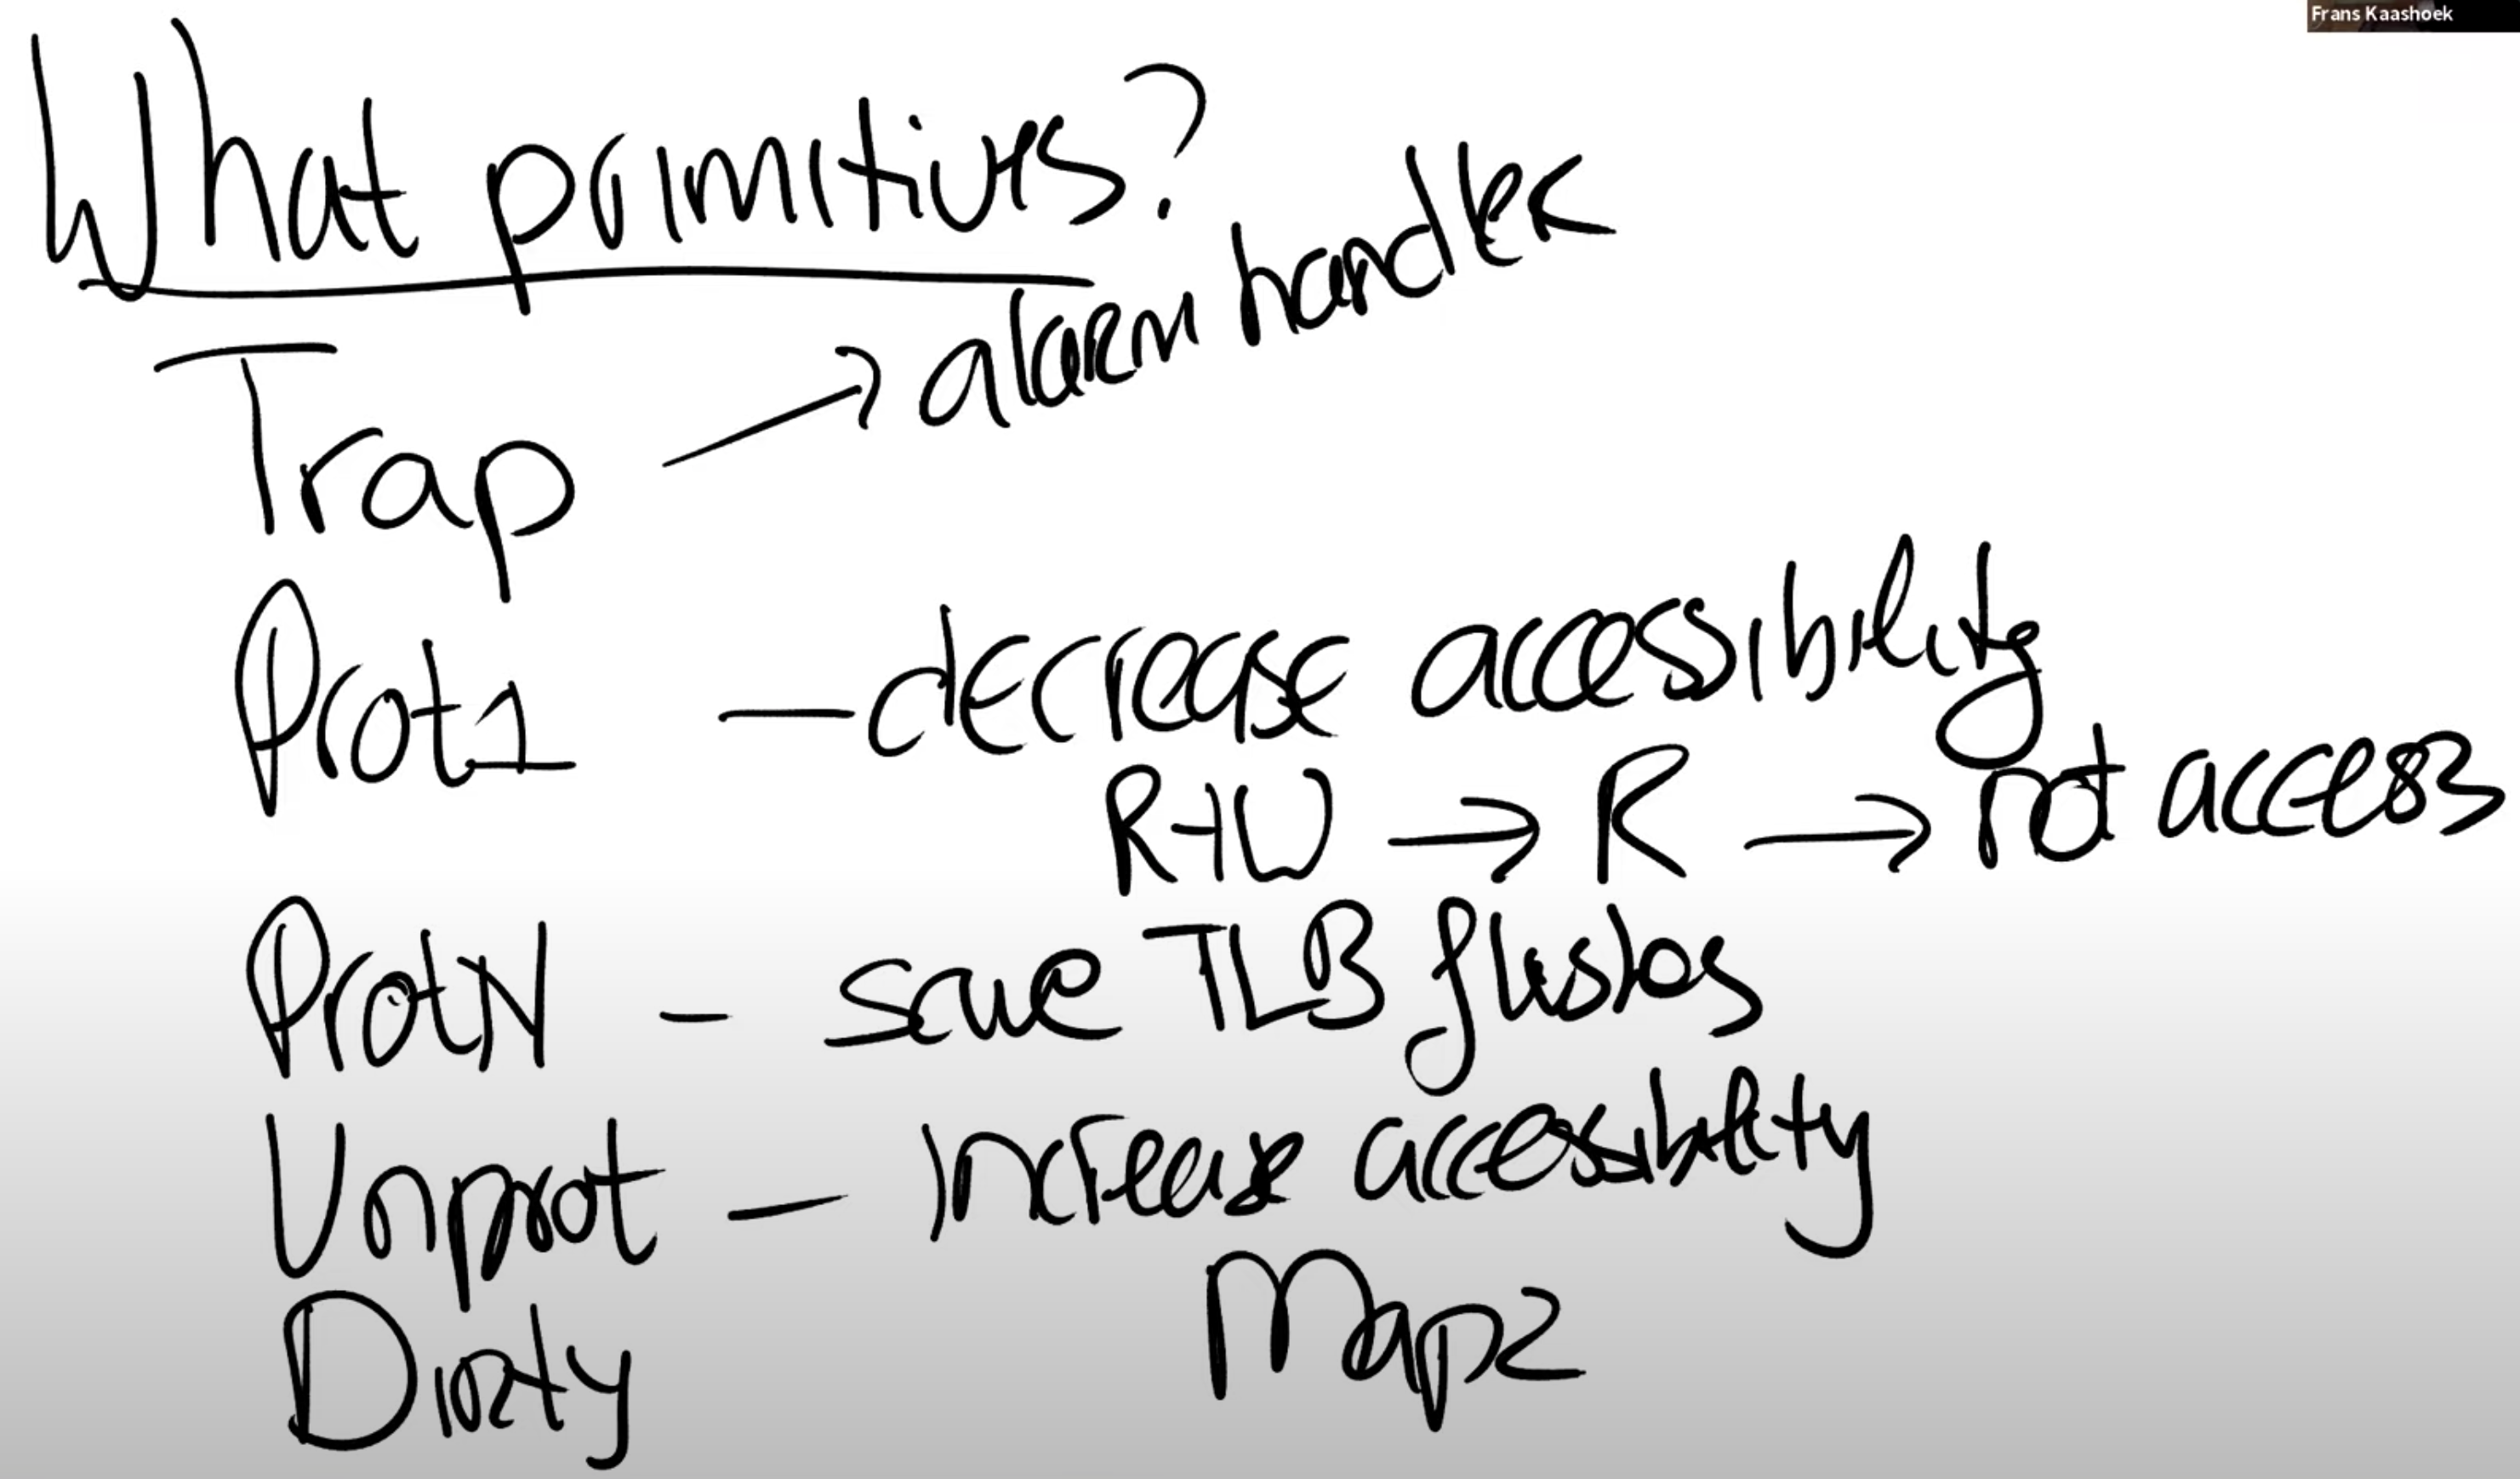 Frans Kaashoek
What primitives?
Trap → alarm handler
Prot1 — decrease accessibility
R+W → R → not access
ProtN – save TLB flushes
Unprot – increase accessibility
Dirty Map2